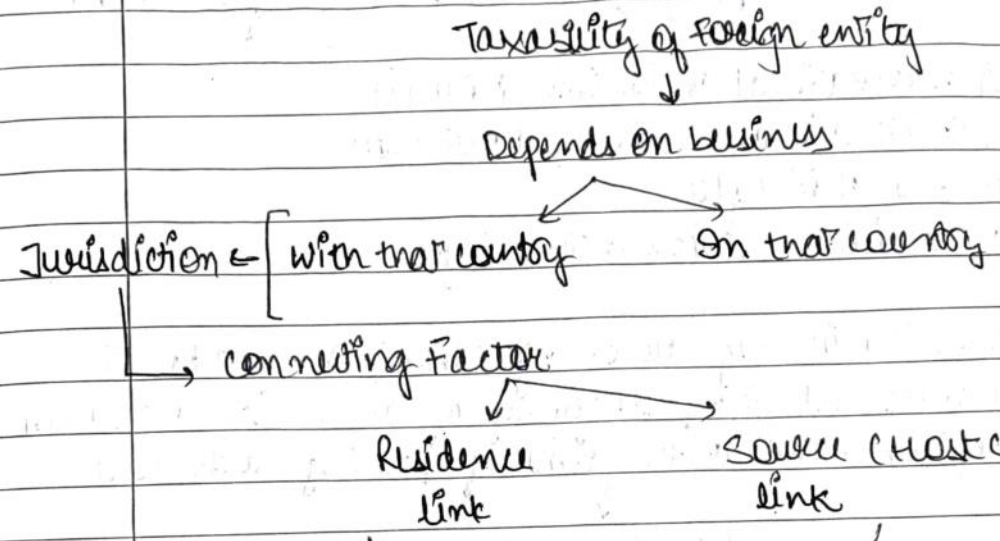 Taxability of foreign entity
↓
Depends on business
Jurisdiction ← [ with that country In that country
→ connecting Factor
Residence Source (Host C
link link